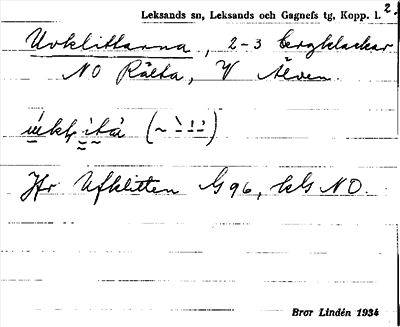 Leksands sn, Leksands och Gagnefs tg, Kopp. l. 2.
Uvklittarna, 2-3 bergklackar
NO Rälta, V Älven.
Jfr Ufklitten G 96, kls NO.
Bror Lindén 1934